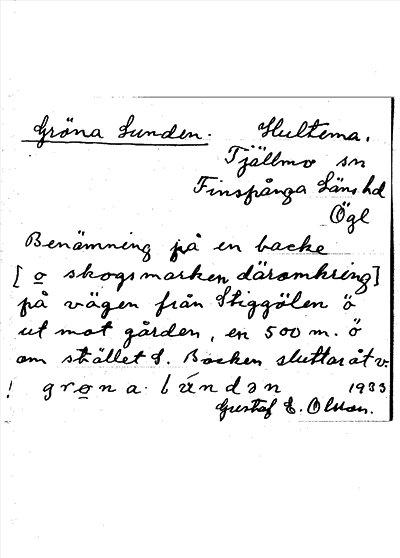 Gröna Lunden. Hultema.
Tjällmo sn
Finspånga Läns hd
Ögl
Benämning på en backe
[ o skogsmarken däromkring]
på vägen från Stiggölen ö
ut mot gården, en 500 m. ö
om stället S. Backen sluttar åt v.
! grøna lúndən 1933
Gustaf E. Olsson.